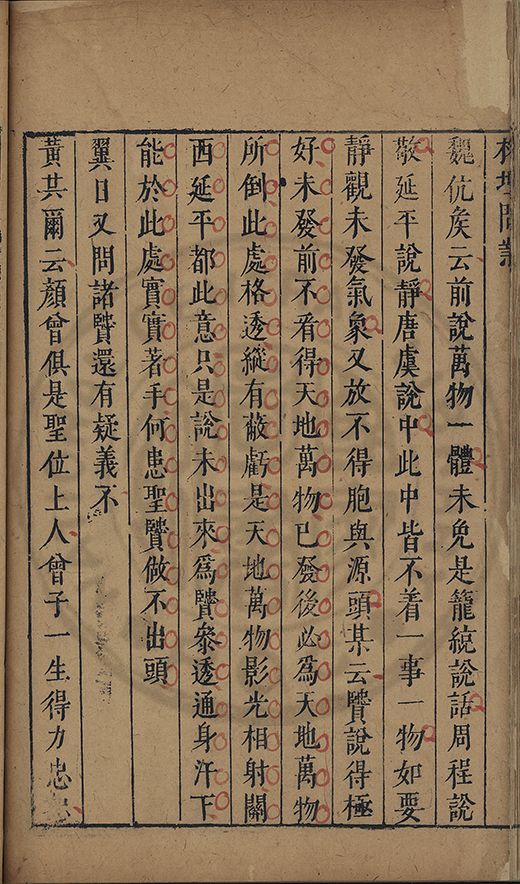 榕壇問業
魏伉矦云前說萬物一體未免是籠統說話周程說
敬延平說靜唐虞說中此中皆不着一事一物如要
靜觀未發氣象又放不得胞與源頭某云賢說得極
好未發前不看得天地萬物已發後必爲天地萬物
所倒此處格透縱有蔽虧是天地萬物影光相射關
西延平都此意只是說未出來爲賢參透通身汗下
能於此處實實著手何患聖賢做不出頭
翼日又問諸賢還有疑義不
黃共爾云顏曾俱是聖位上人曾子一生得力忠恕